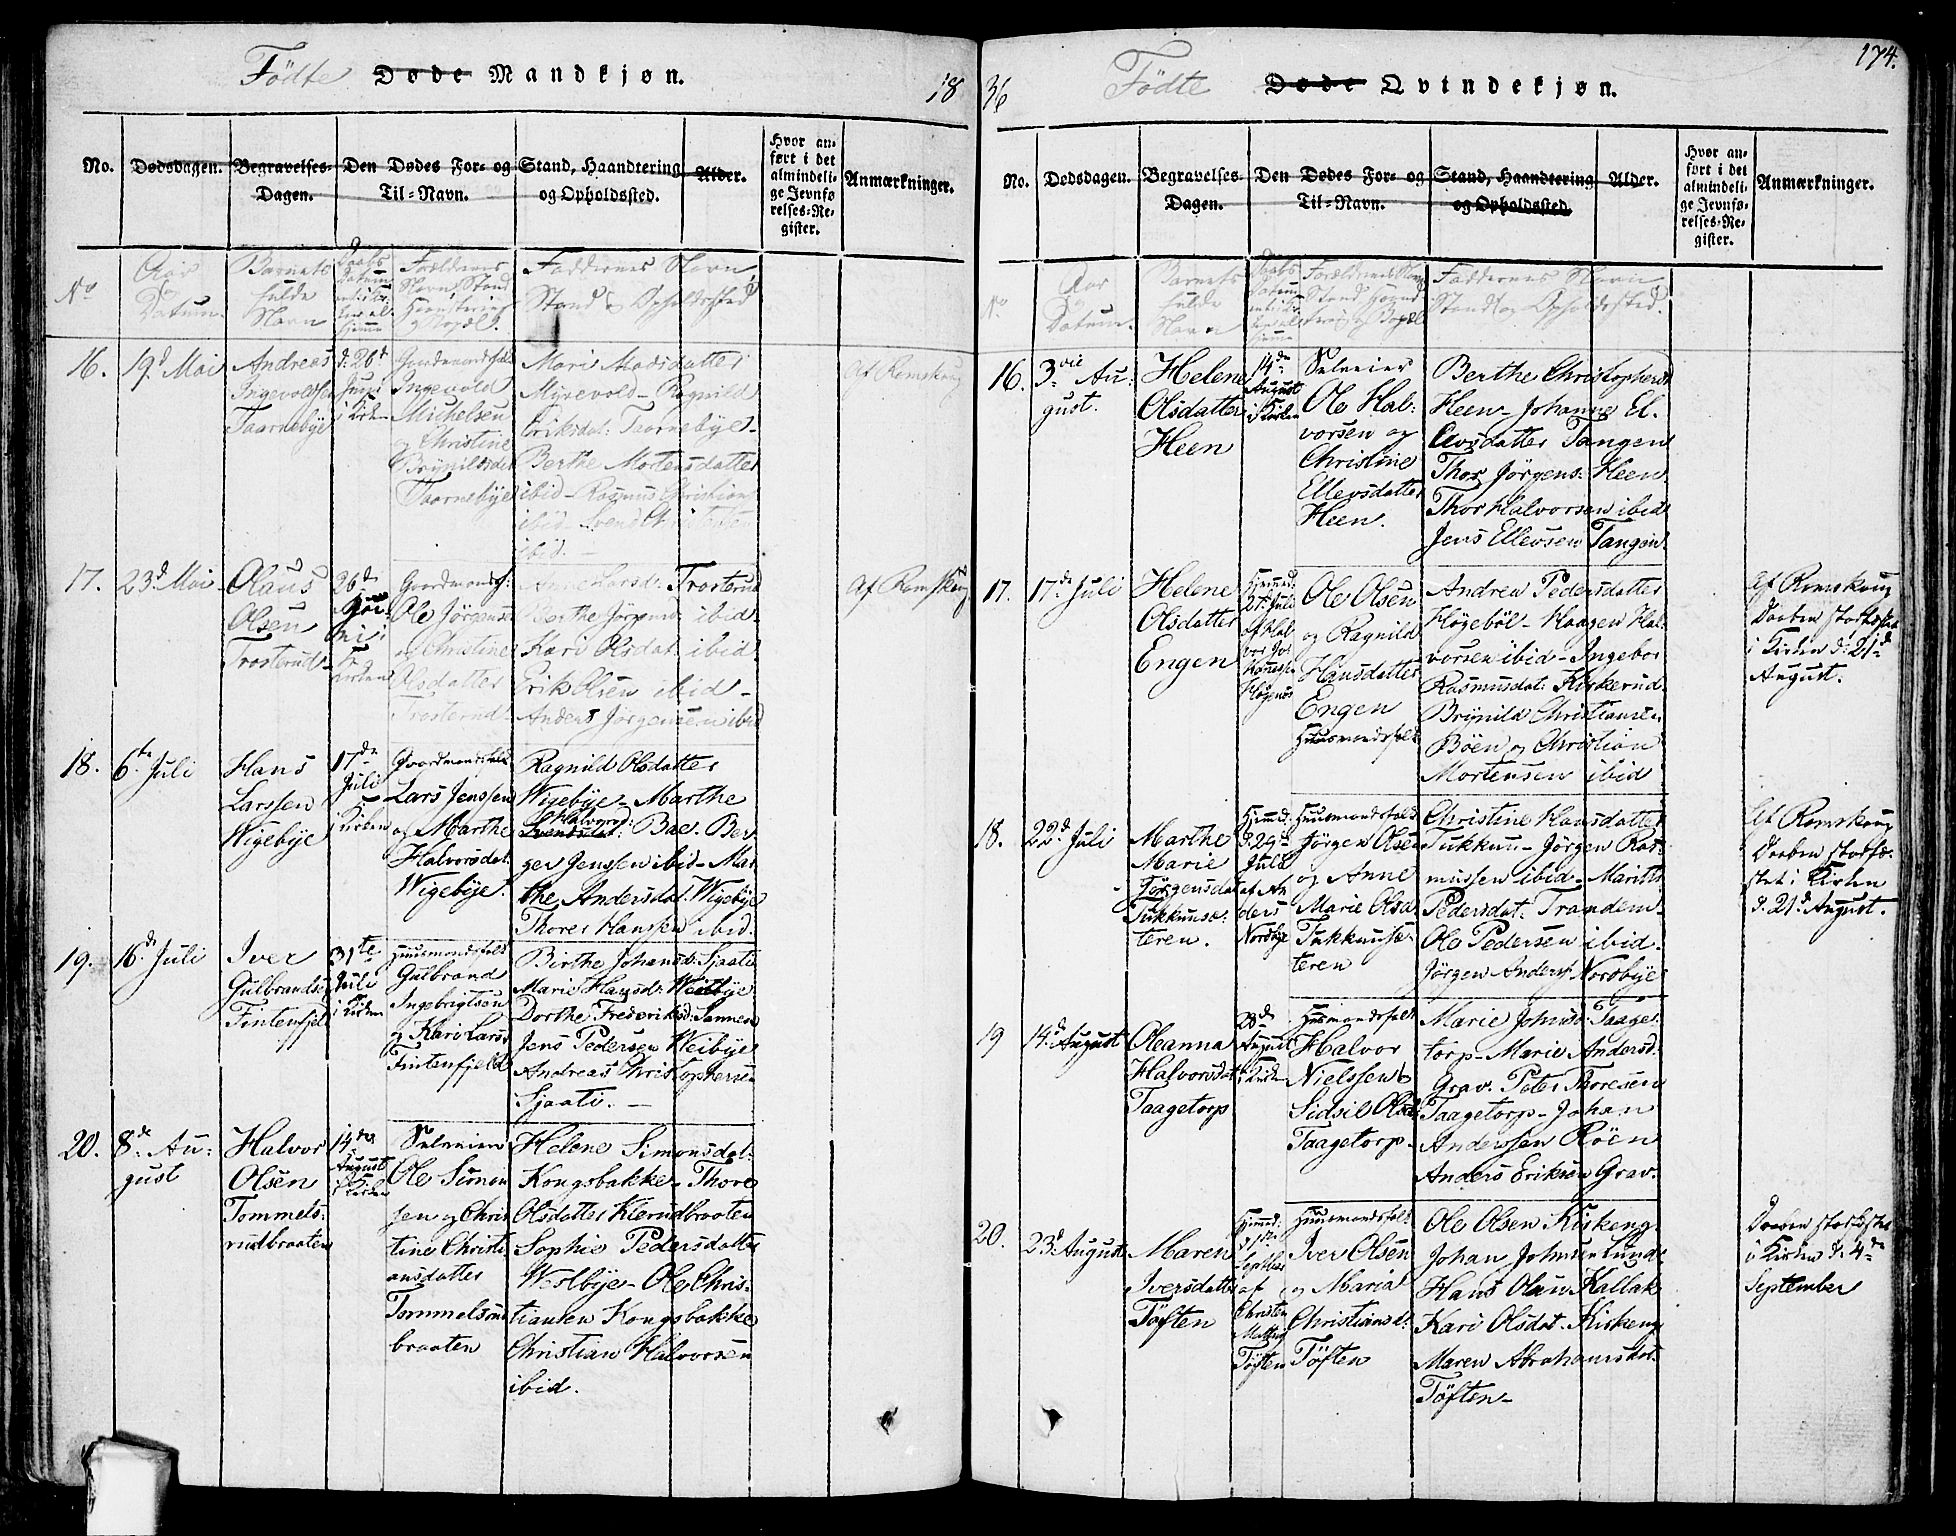 Födte Døde Mandkjøn.
18
No.
Dødsdagen.
Begravelses-
Dagen.
Den Dødes For- og
Til-Navn.
Stand, Haandtering
og Opholdssted.
Alder.
Hvor an-
ført i det
almindeli-
ge Jevnfø-
relses-Re-
gister.
Anmærkninger.
No
Aar
og
Datum.
Barnets
fulde
Navn
Daabs
Datum
Forældrenes
Navn, Stand
Haandtering
og Bopæl.
Faddernes Navn,
Stand & Opholdssted
16.
19d Mai
Andreas
Ingevoldsen
Taarnebÿe
d: 26d
Juni
i Kirken
Gaardmandsfolk
Ingevold
Michelsen
og Christine
Brÿnildsdat
Taarnebÿe
Mari Madsdatter
Mÿrevold – Ragnild
Eriksdat: Taarnebÿe –
Berthe Mortensdatter
ibid – Rasmus Christians
ibid – Svend Christensen
ibid. –
Af Romskoug
17.
23d Mai
Olaus
Olsen
Trosterud
26de
Juni
i
Kirken
Gaardmandsf:
Ole Jörgensen
og Christine
Olsdatter
Trosterud
Anne Larsd: Trosterud
Berthe Jörgensd ibid –
Kari Olsdat: ibid
Erik Olsen ibid –
Anders Jörgensen ibid
Af Romskoug
18.
6te Juli
Hans
Larssen
Wigebÿe
17de
Juli
i Kirken
Gaardmandsfolk
Lars Jenssen
og Marthe
Halvorsdat:
Wigebÿe.
Ragnild Olsdatter
Wigebÿe – Marthe
Halvorsd:
Svendsdat: Bae – Ber
ger Jenssen ibid – Mar
the Andersdat: Wigebÿe
Thorer Hanssen ibid.
19.
16d Juli
Iver
Gulbrandsen
Fintenfjeld
31te
Juli
i Kirken
Huusmandsfolk
Gulbrand
Ingebrigtsen
og Kari Larsd
Fintenfjeld
Birthe Johansd: Sjaati
Marie Hansd: Weibÿe
Dorthe Frederiksd: Sannen
Jens Pedersen Weibÿe
Andreas Christophersen
Sjaati. –
20.
8de Au-
gust
Halvor
Olsen
Tommels-
rudbraaten
14de
August
i Kirken
Selveier
Ole Simon
sen og Chris
tine Christi-
ansdatter
Tommelsrud
braaten
Helene Simonsdat:
Kongsbakke – Thore
Olsdatter Kierudbraaten
Sophie Pedersdatter
Westbÿe – Ole Chris-
tiansen Kongsbakke
Christian Halvorsen
ibid.
36
Födte Døde Qvindekjøn.
174.
No.
Dødsdagen.
Begravelses-
Dagen.
Den Dødes For- og
Til-Navn.
Stand, Haandtering
og Opholdssted.
Alder.
Hvor an-
ført i det
almindeli-
ge Jevnfø-
relses-Re-
gister.
Anmærkninger.
No.
Aar
og
Datum.
Barnets
fulde
Navn
Daabs
Datum
Forældrenes Navn
Stand Haand
tering & Bopæl
Faddernes Navn
Stand og Opholdssted.
16.
3die Au-
gust.
Helene
Olsdatter
Heen
14de
August
i Kirken
Selveier
Ole Hal-
vorsen og
Christine
Ellevsdatter
Heen.
Berthe Christophersd
Heen – Johanne El-
levsdatter Tangen
Thor Jörgens: Heen
Thor Halvorsen ibid
Jens Ellevsen Tangen
17.
17de Juli
Helene
Olsdatter
Engen
Hjemmed:
27d Juli
af Hal
vor
Ole Olsen
og Ragnild
Hansdatter
Engen
Huusmandsfolk
Andrea Pedersdatter
Högeböl – Haagen Hal-
vorsen ibid – Ingebor
Rasmusdat: Kirkerud
Brÿnild Christiansen
Böen og Christian
Mortensen ibid
Af Romskoug
Daaben stadfæstet
i Kirken d: 21d
August.
18.
22d Juli
Marthe
Marie
Jörgensdat
Tukkusæ-
teren.
Hjemmed:
d: 29d
Juli
af An
ders
Nordbÿe
Huusmandsfolk
Jörgen Olsen
og Anne
Marie Olsd
Tukkusæ-
teren
Christine Hansdatter
Tukkuu – Jörgen Ras-
mussen ibid – Marith
Pedersdat: Trandem –
Ole Pedersen ibid –
Jörgen Anders: Nordbÿe
Af Romskoug
Daaben stadfæ-
stet i Kirken
d: 21d August.
19
14d August
Oleanna
Halvorsdat
Taagetorp
28de
August
i Kirken
Huusmandsfolk
Halvor
Nielssen &
Sidsil Olsd
Taagetorp –
Marie Johnsd Taage-
torp – Marie Andersd:
Grav. Peter Thoresen
Taagetorp – Johan
Anderssen Röen
Anders Eriksen Grav.
20.
23d August
Maren
Iversdatter
Töften
Hjemmed:
d: 1ste
Septbr
af
Christen
Töften
Huusmandsfolk
Iver Olsen
og Maria
Christiansd:
Töften
Ole Olsen Kirkeng
Johan Johnsen Lund
Hans Olsen Kallak
Kari Olsdat. Kirkeng
Maren Abrahamsdat.
Töften –
Daaben stadfæstet
i Kirken d: 4de
September